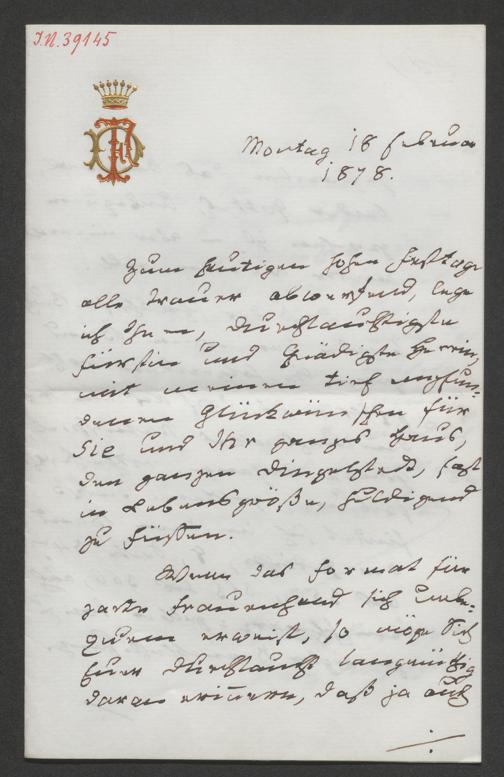 J.N. 39145
Montag 18 Februar
1878.
Zum heutigen hohen Festtage
alle Trauer abwerfend, lege
ich Ihnen, Durchlauchtigste
Fürstin und Gnädigste Herrin,
mit meinen tief empfun-
denen Glückwünschen für
Sie und Ihr ganzes Haus,
den ganzen Dingelstedt, fast
in Lebensgröße, huldigend
zu Füßen.
Wenn das Format für
zarte Frauenhand sich unbe-
quem erweist, so möge Sich
Euer Durchlaucht langmüthig
daran erinnern, daß ja auch
./.